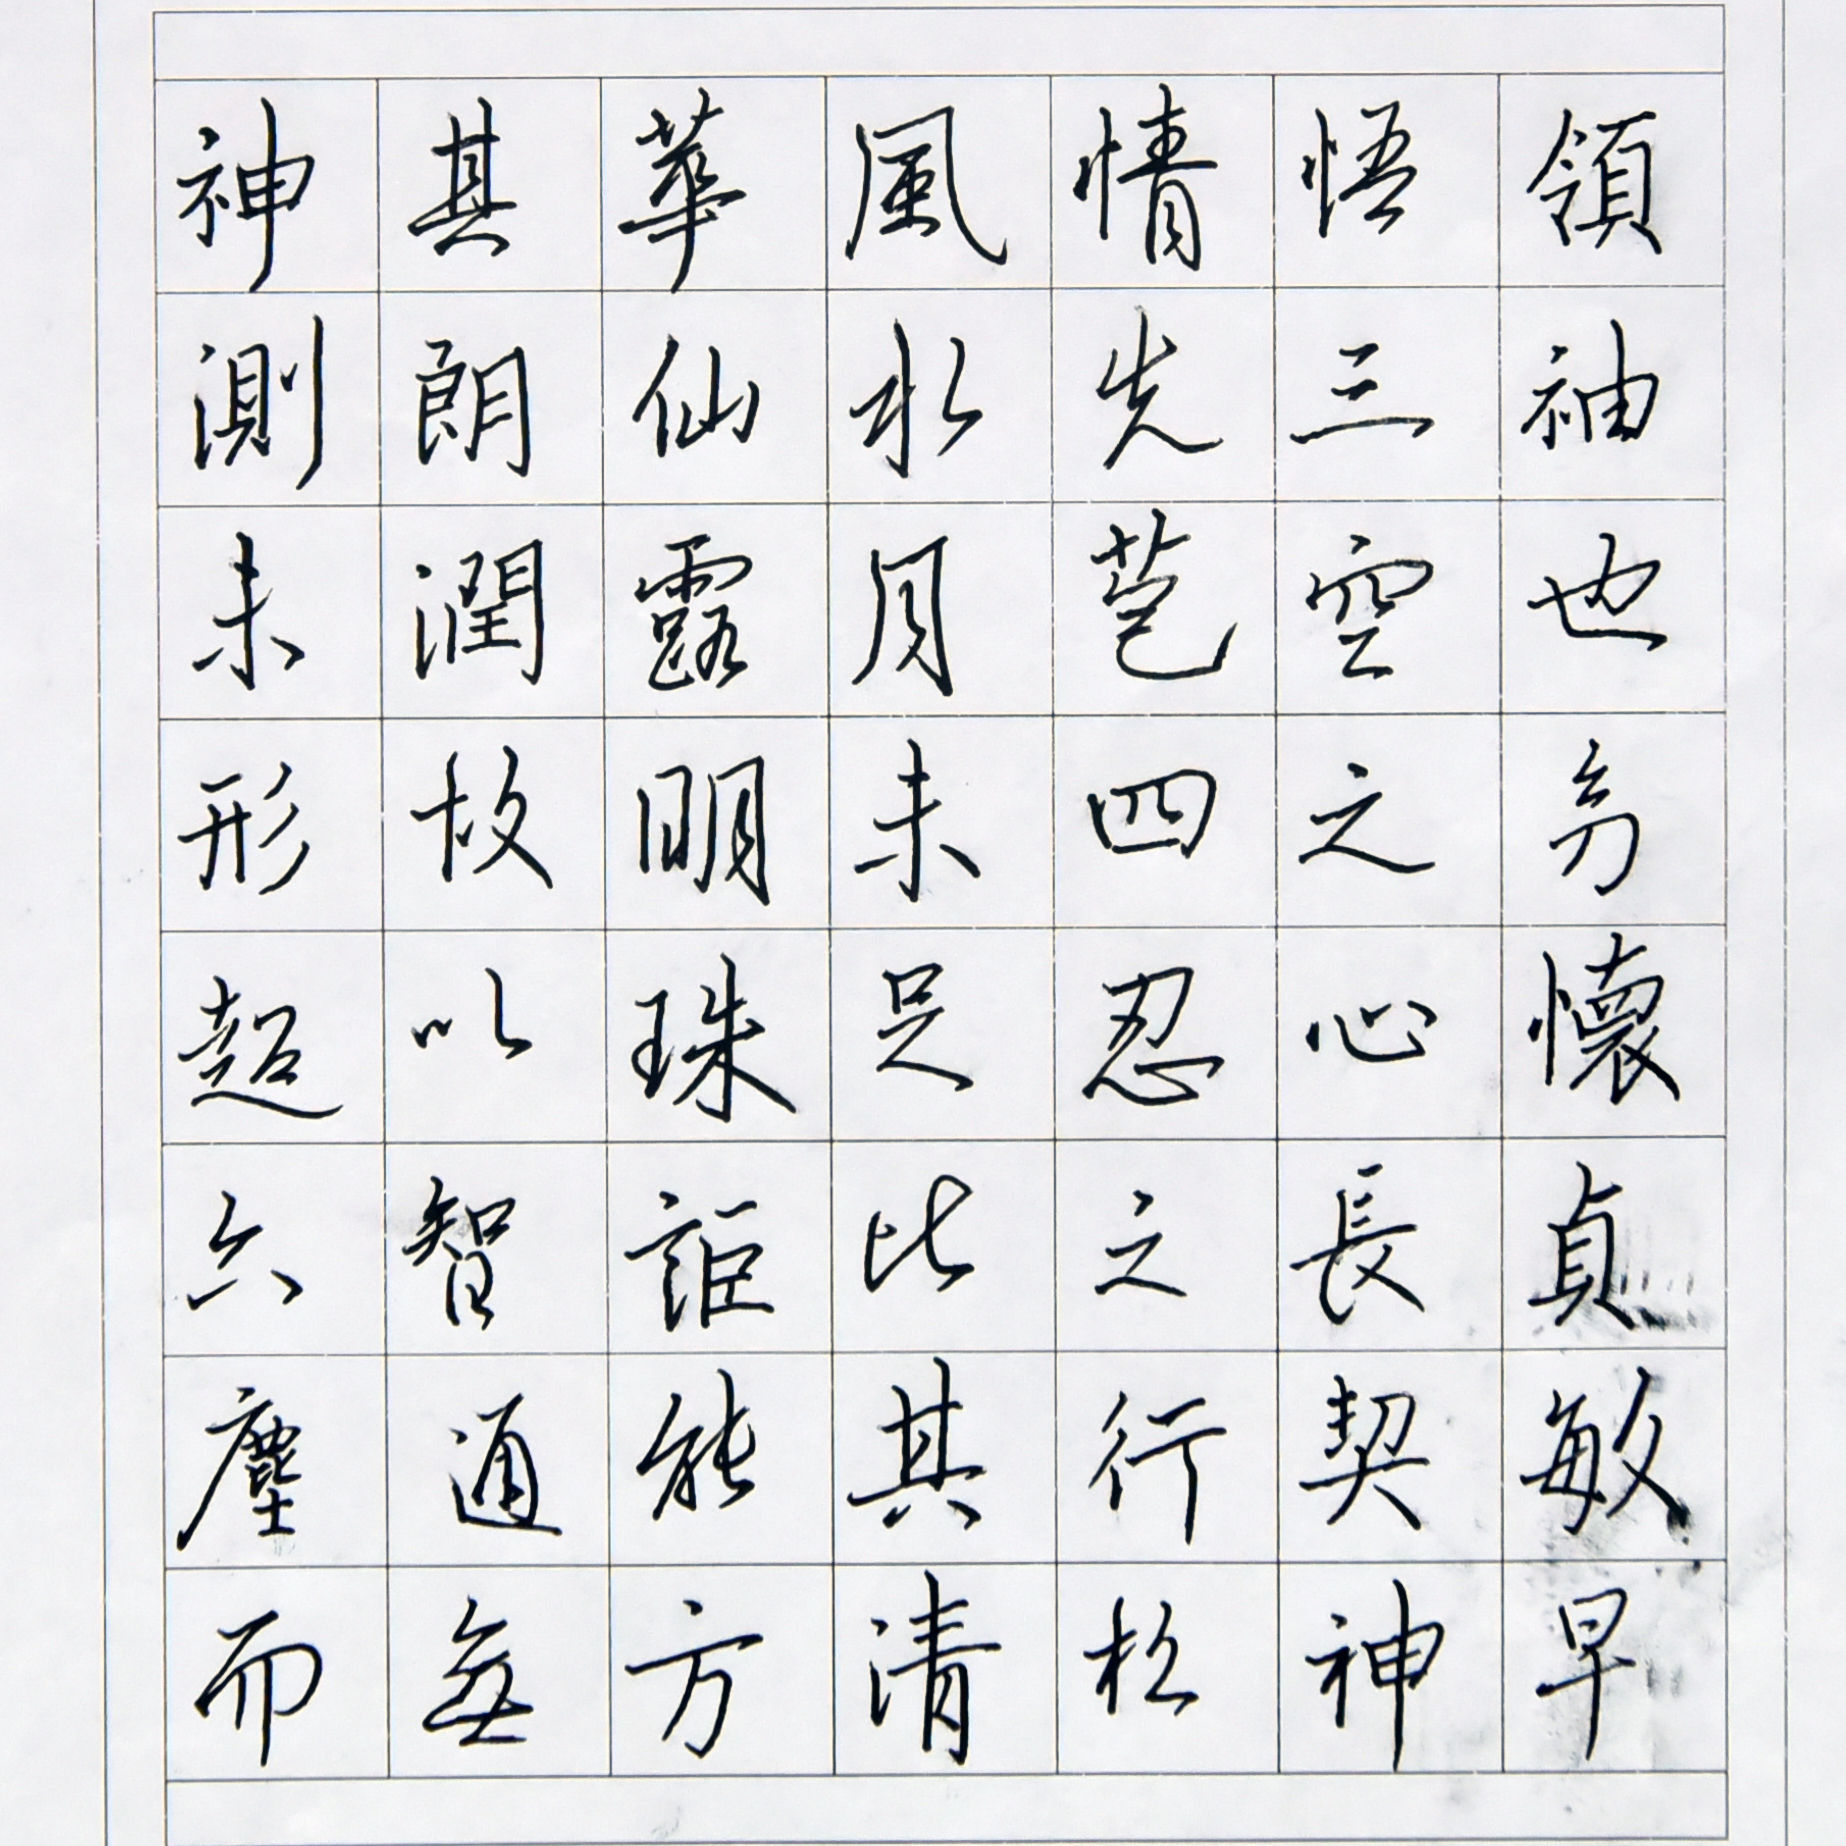 領袖也幼懷貞敏早
悟三空之心長契神
情先苞四忍之行松
風水月未足比其清
華仙露明珠詎能方
其朗潤故以智通無
神測未形超六塵而